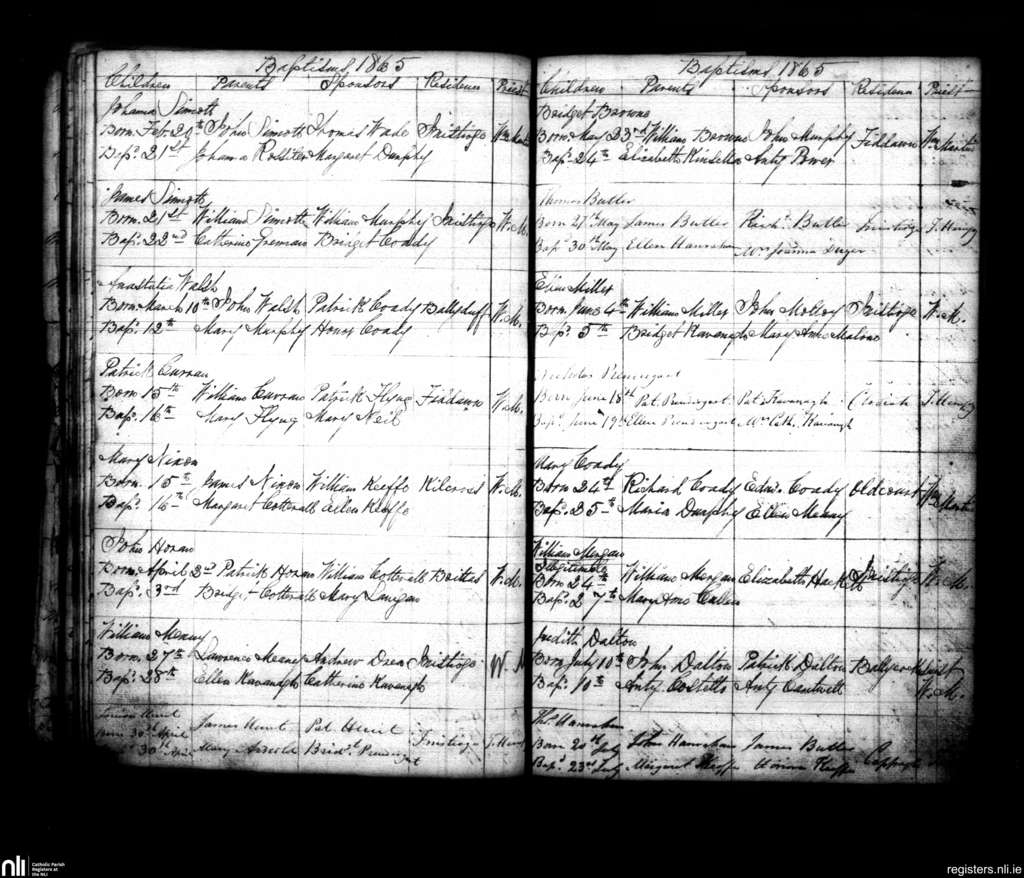 Baptisms 1865
Children Parents Sponsors Residence Priest
Johanna Sinnott
Born Feb. 20th John Sinnott Thomas Wade Inistioge Wm Martin
Bap. 21st Johanna Rossiter Margaret Dunphy
James Sinnott
Born 21st William Sinnott William Murphy Inistioge W. M.
Bap. 22nd Catherine Bridget Coady
Anastatia Walsh
Born March 10th John Walsh Patrick Coady Ballyduff W. M.
Bap. 12th Mary Murphy Honor Coady
Patrick Curran
Born 15th William Curran Patrick Flyng Fiddawn W. M.
Bap. 16th Mary Flyng Mary Neil
Mary Nixon
Born 15th James Nixon William Keeffe Kilcross W. M.
Bap. 16th Margaret Cotterall Ellen Keeffe
John Horan
Born April 2nd Patrick Horan William Cotterall W. M.
Bap. 3rd Bridget Cotterall Mary Langan
William Meany
Born 27th Lawrence Meany Andrew Inistioge W. M
Bap. 28th Ellen Kavanagh Catherine Kavanagh
Born 30th April James Pat Inistioge
30th Mary Bridt
Baptisms 1865
Children Parents Sponsors Residence Priest
Bridget Browne
Born May 23rd William Browne John Murphy Fiddawn Wm Martin
Bap. 24th Elizabeth Kinsella Anty Power
Thomas Butler
Born 27th May James Butler Richd. Butler Inistioge
Bap. 30th May Ellen Hanrahan Mrs Joanna Dwyer
Miller
Born June 4th William Miller John Inistioge W. M.
Bap. 5th Bridget Kavanagh Mary Anne Malone
Nicholas Prendergast
Born June 18th Pat. Prendergast Pat. Kavanagh Clodiah
Bap. June 19th Ellen Prendergast Mrs Cath. Kavanagh
Mary Coady
Born 24th Richard Coady Edw. Coady Oldcourt Wm Martin
Bap. 25th Maria Dunphy Ellen Meany
William Morgan
Illegitimate
Born 24th William Morgan Elizabeth Hackett Inistioge W. M.
Bap. 27th Mary Anne Cullen
Judith Dalton
Born July 10th John Dalton Patrick Dalton
Bap. 10th Anty Costello Anty Cantwell W. M.
Thos. Hanrahan
Born 20th July John Hanrahan James Butler Cappagh
Bap. 23rd July Margaret Keeffe
nli Catholic Parish
Registers at
the NLI
registers.nli.ie